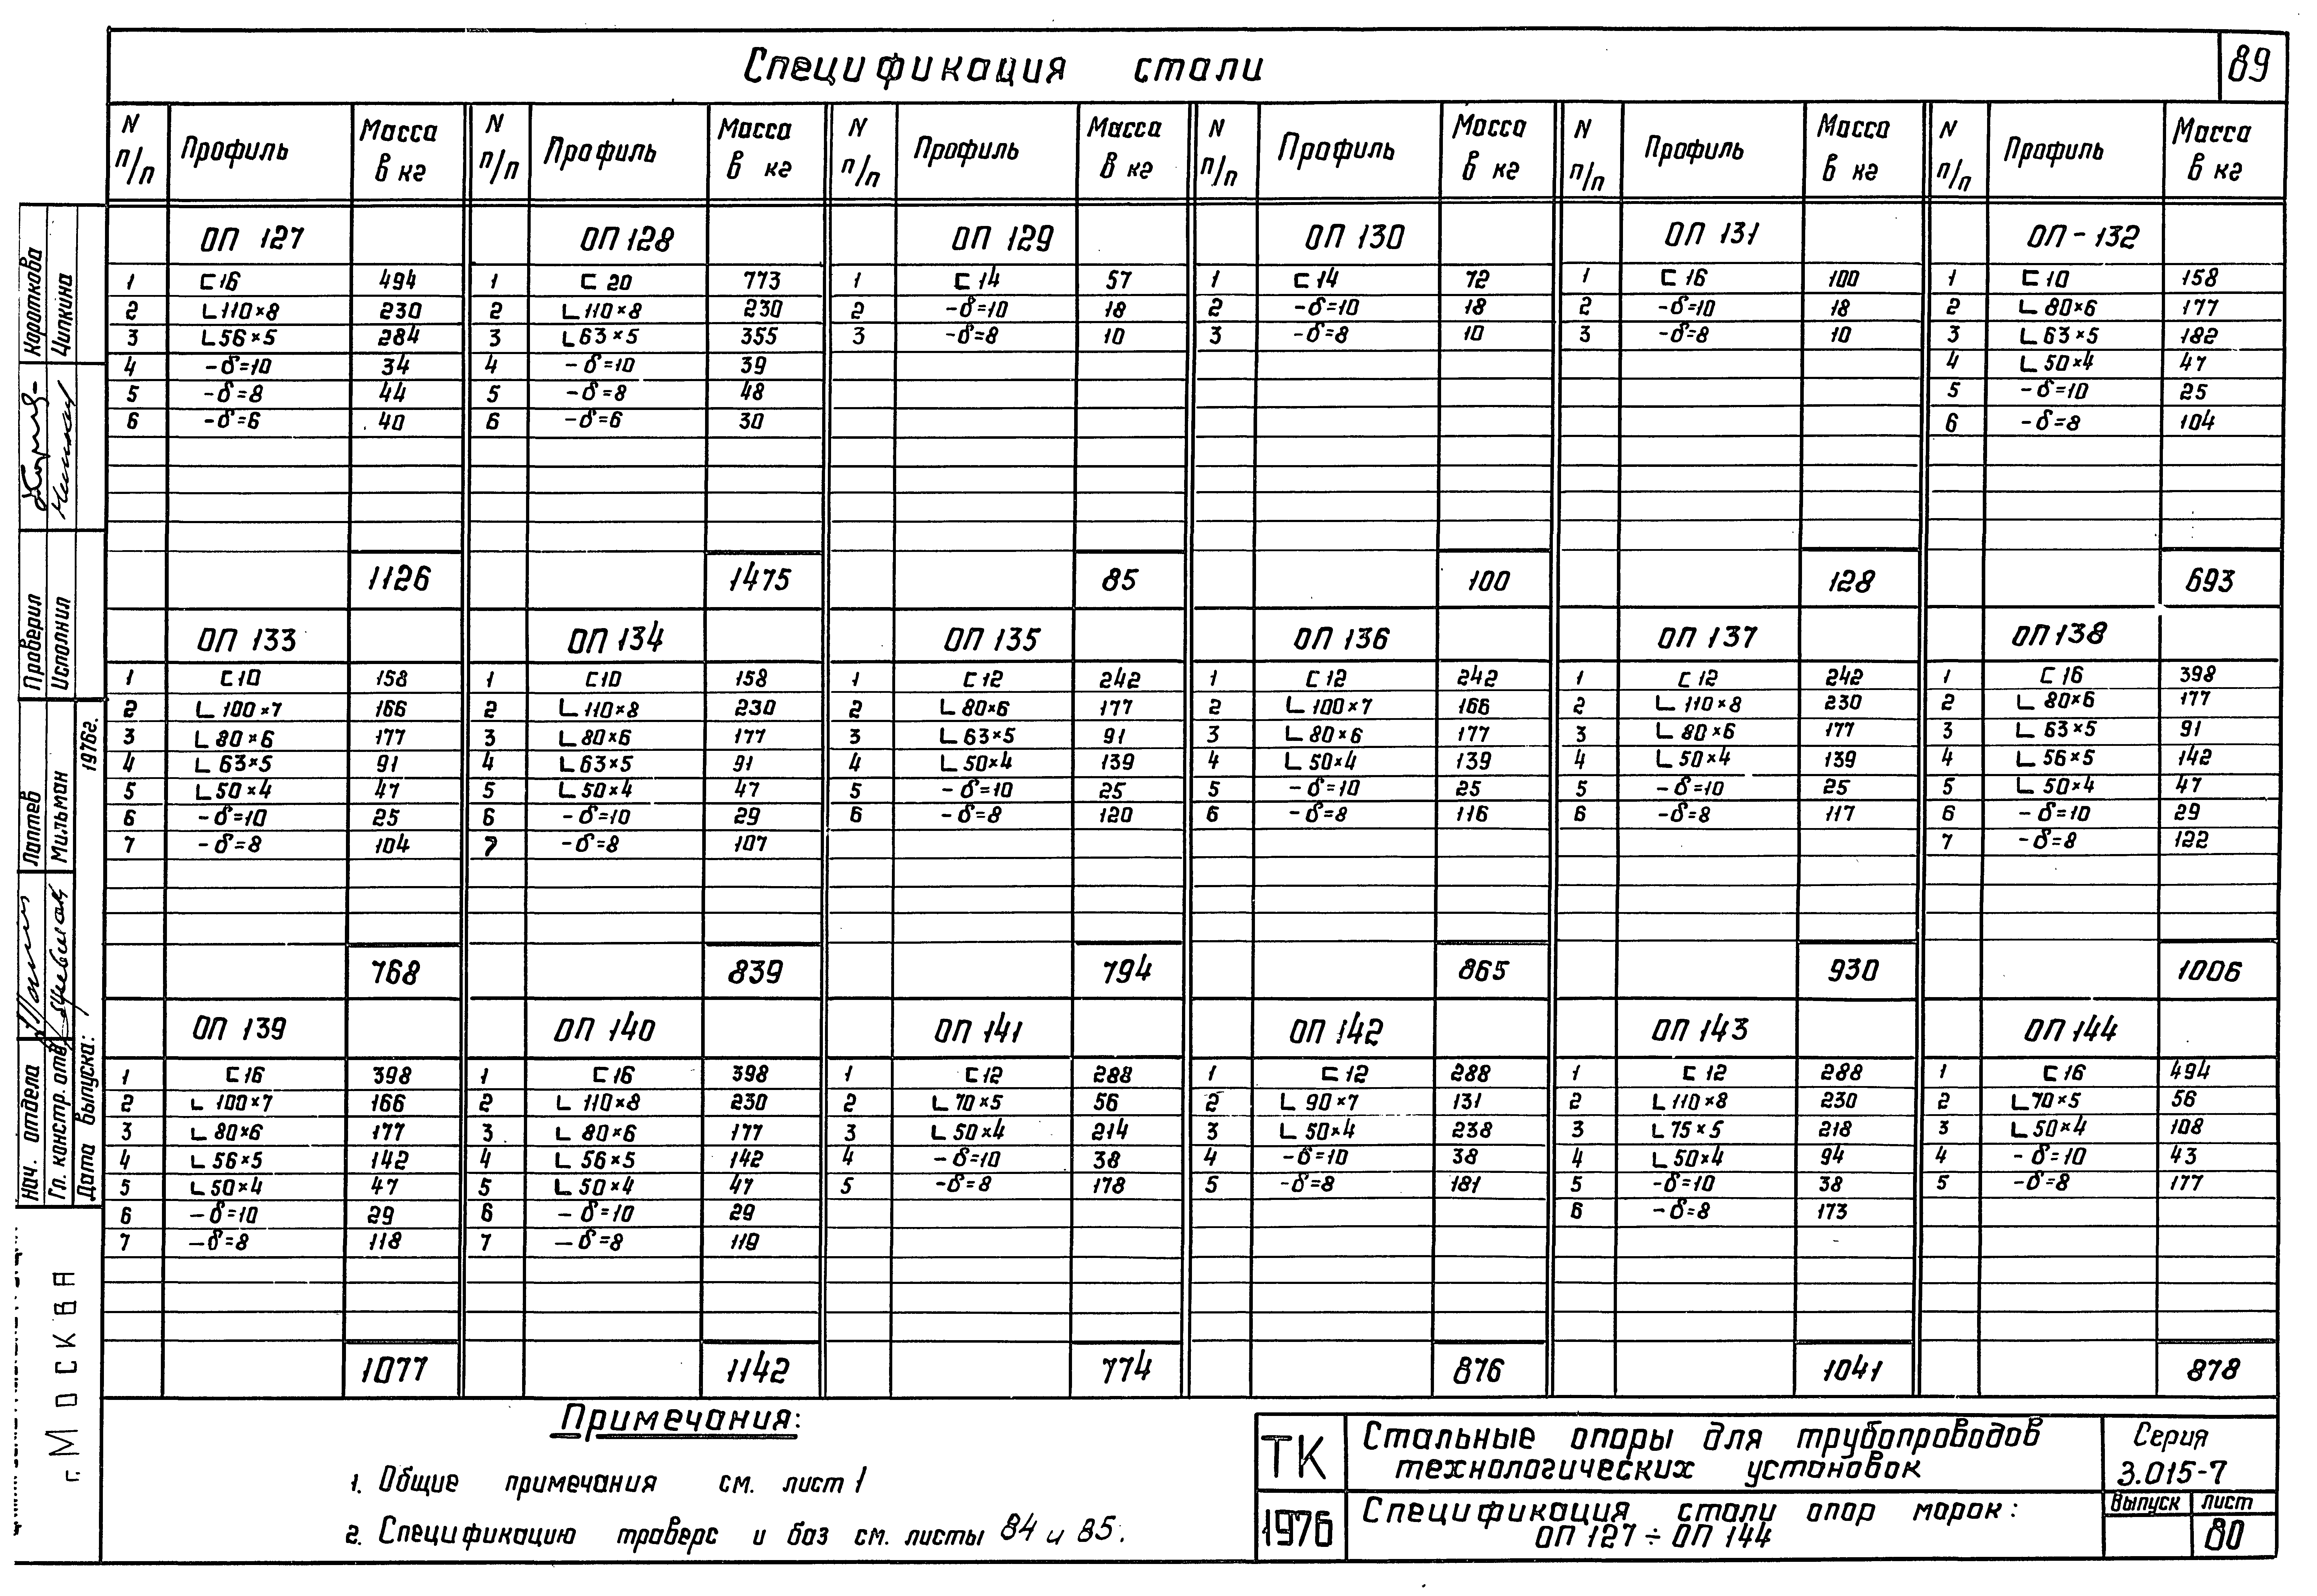 Спецификация стали
89
N п/п Профиль Масса в кг N п/п Профиль Масса в кг N п/п Профиль Масса в кг N п/п Профиль Масса в кг N п/п Профиль Масса в кг N п/п Профиль Масса в кг
ОП 127 ОП 128 ОП 129 ОП 130 ОП 131 ОП-132
1 ⊏16 494 1 ⊏ 20 773 1 ⊏ 14 57 1 ⊏14 72 1 ⊏ 16 100 1 ⊏10 158
2 ∟110×8 230 2 ∟110×8 230 2 -δ=10 18 2 -δ=10 18 2 -δ=10 18 2 ∟80×6 177
3 ∟56×5 284 3 ∟63×5 355 3 -δ=8 10 3 -δ=8 10 3 -δ=8 10 3 ∟63×5 182
4 -δ=10 34 4 -δ=10 39 4 ∟50×4 47
5 -δ=8 44 5 -δ=8 48 5 -δ=10 25
6 -δ=6 40 6 -δ=6 30 6 -δ=8 104
1126 1475 85 100 128 693
ОП 133 ОП 134 ОП 135 ОП 136 ОП 137 ОП 138
1 ⊏10 158 1 ⊏10 158 1 ⊏12 242 1 ⊏12 242 1 ⊏12 242 1 ⊏16 398
2 ∟100×7 166 2 ∟110×8 230 2 ∟80×6 177 2 ∟100×7 166 2 ∟110×8 230 2 ∟80×6 177
3 ∟80×6 177 3 ∟80×6 177 3 ∟63×5 91 3 ∟80×6 177 3 ∟80×6 177 3 ∟63×5 91
4 ∟63×5 91 4 ∟63×5 91 4 ∟50×4 139 4 ∟50×4 139 4 ∟50×4 139 4 ∟56×5 142
5 ∟50×4 47 5 ∟50×4 47 5 -δ=10 25 5 -δ=10 25 5 -δ=10 25 5 ∟50×4 47
6 -δ=10 25 6 -δ=10 29 6 -δ=8 120 6 -δ=8 116 6 -δ=8 117 6 -δ=10 29
7 -δ=8 104 7 -δ=8 107 7 -δ=8 122
768 839 794 865 930 1006
ОП 139 ОП 140 ОП 141 ОП 142 ОП 143 ОП 144
1 ⊏16 398 1 ⊏16 398 1 ⊏12 288 1 ⊏12 288 1 ⊏12 288 1 ⊏16 494
2 ∟100×7 166 2 ∟110×8 230 2 ∟70×5 56 2 ∟90×7 131 2 ∟110×8 230 2 ∟70×5 56
3 ∟80×6 177 3 ∟80×6 177 3 ∟50×4 214 3 ∟50×4 238 3 ∟75×5 218 3 ∟50×4 108
4 ∟56×5 142 4 ∟56×5 142 4 -δ=10 38 4 -δ=10 38 4 ∟50×4 94 4 -δ=10 43
5 ∟50×4 47 5 ∟50×4 47 5 -δ=8 178 5 -δ=8 181 5 -δ=10 38 5 -δ=8 177
6 -δ=10 29 6 -δ=10 29 6 -δ=8 173
7 -δ=8 118 7 -δ=8 119
1077 1142 774 876 1041 878
Примечания:
1. Общие примечания см. лист 1
2. Спецификацию траверс и баз см. листы 84 и 85.
ТК
1976
Стальные опоры для трубопроводов
технологических установок
Спецификация стали опор марок:
ОП 127 ÷ ОП 144
Серия
3.015-7
Выпуск лист
80
Нач. отдела Лаптев Проверил Короткова
Гл. констр. отд Мильман Исполнил Ципкина
Дата выпуска: 1976г.
г. Москва